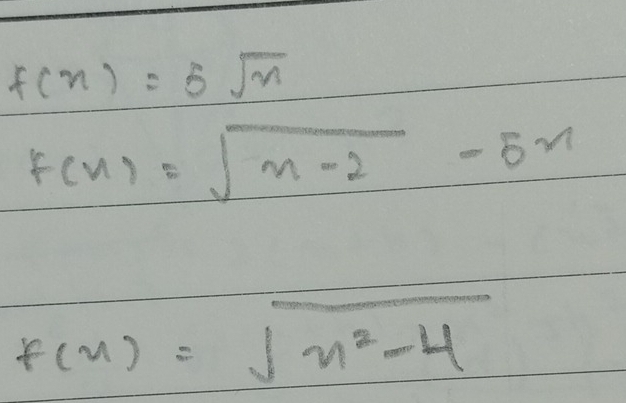 f(x) = 5 √x
f(x) = √(x - 2) - 5x
f(x) = √(x² - 4)